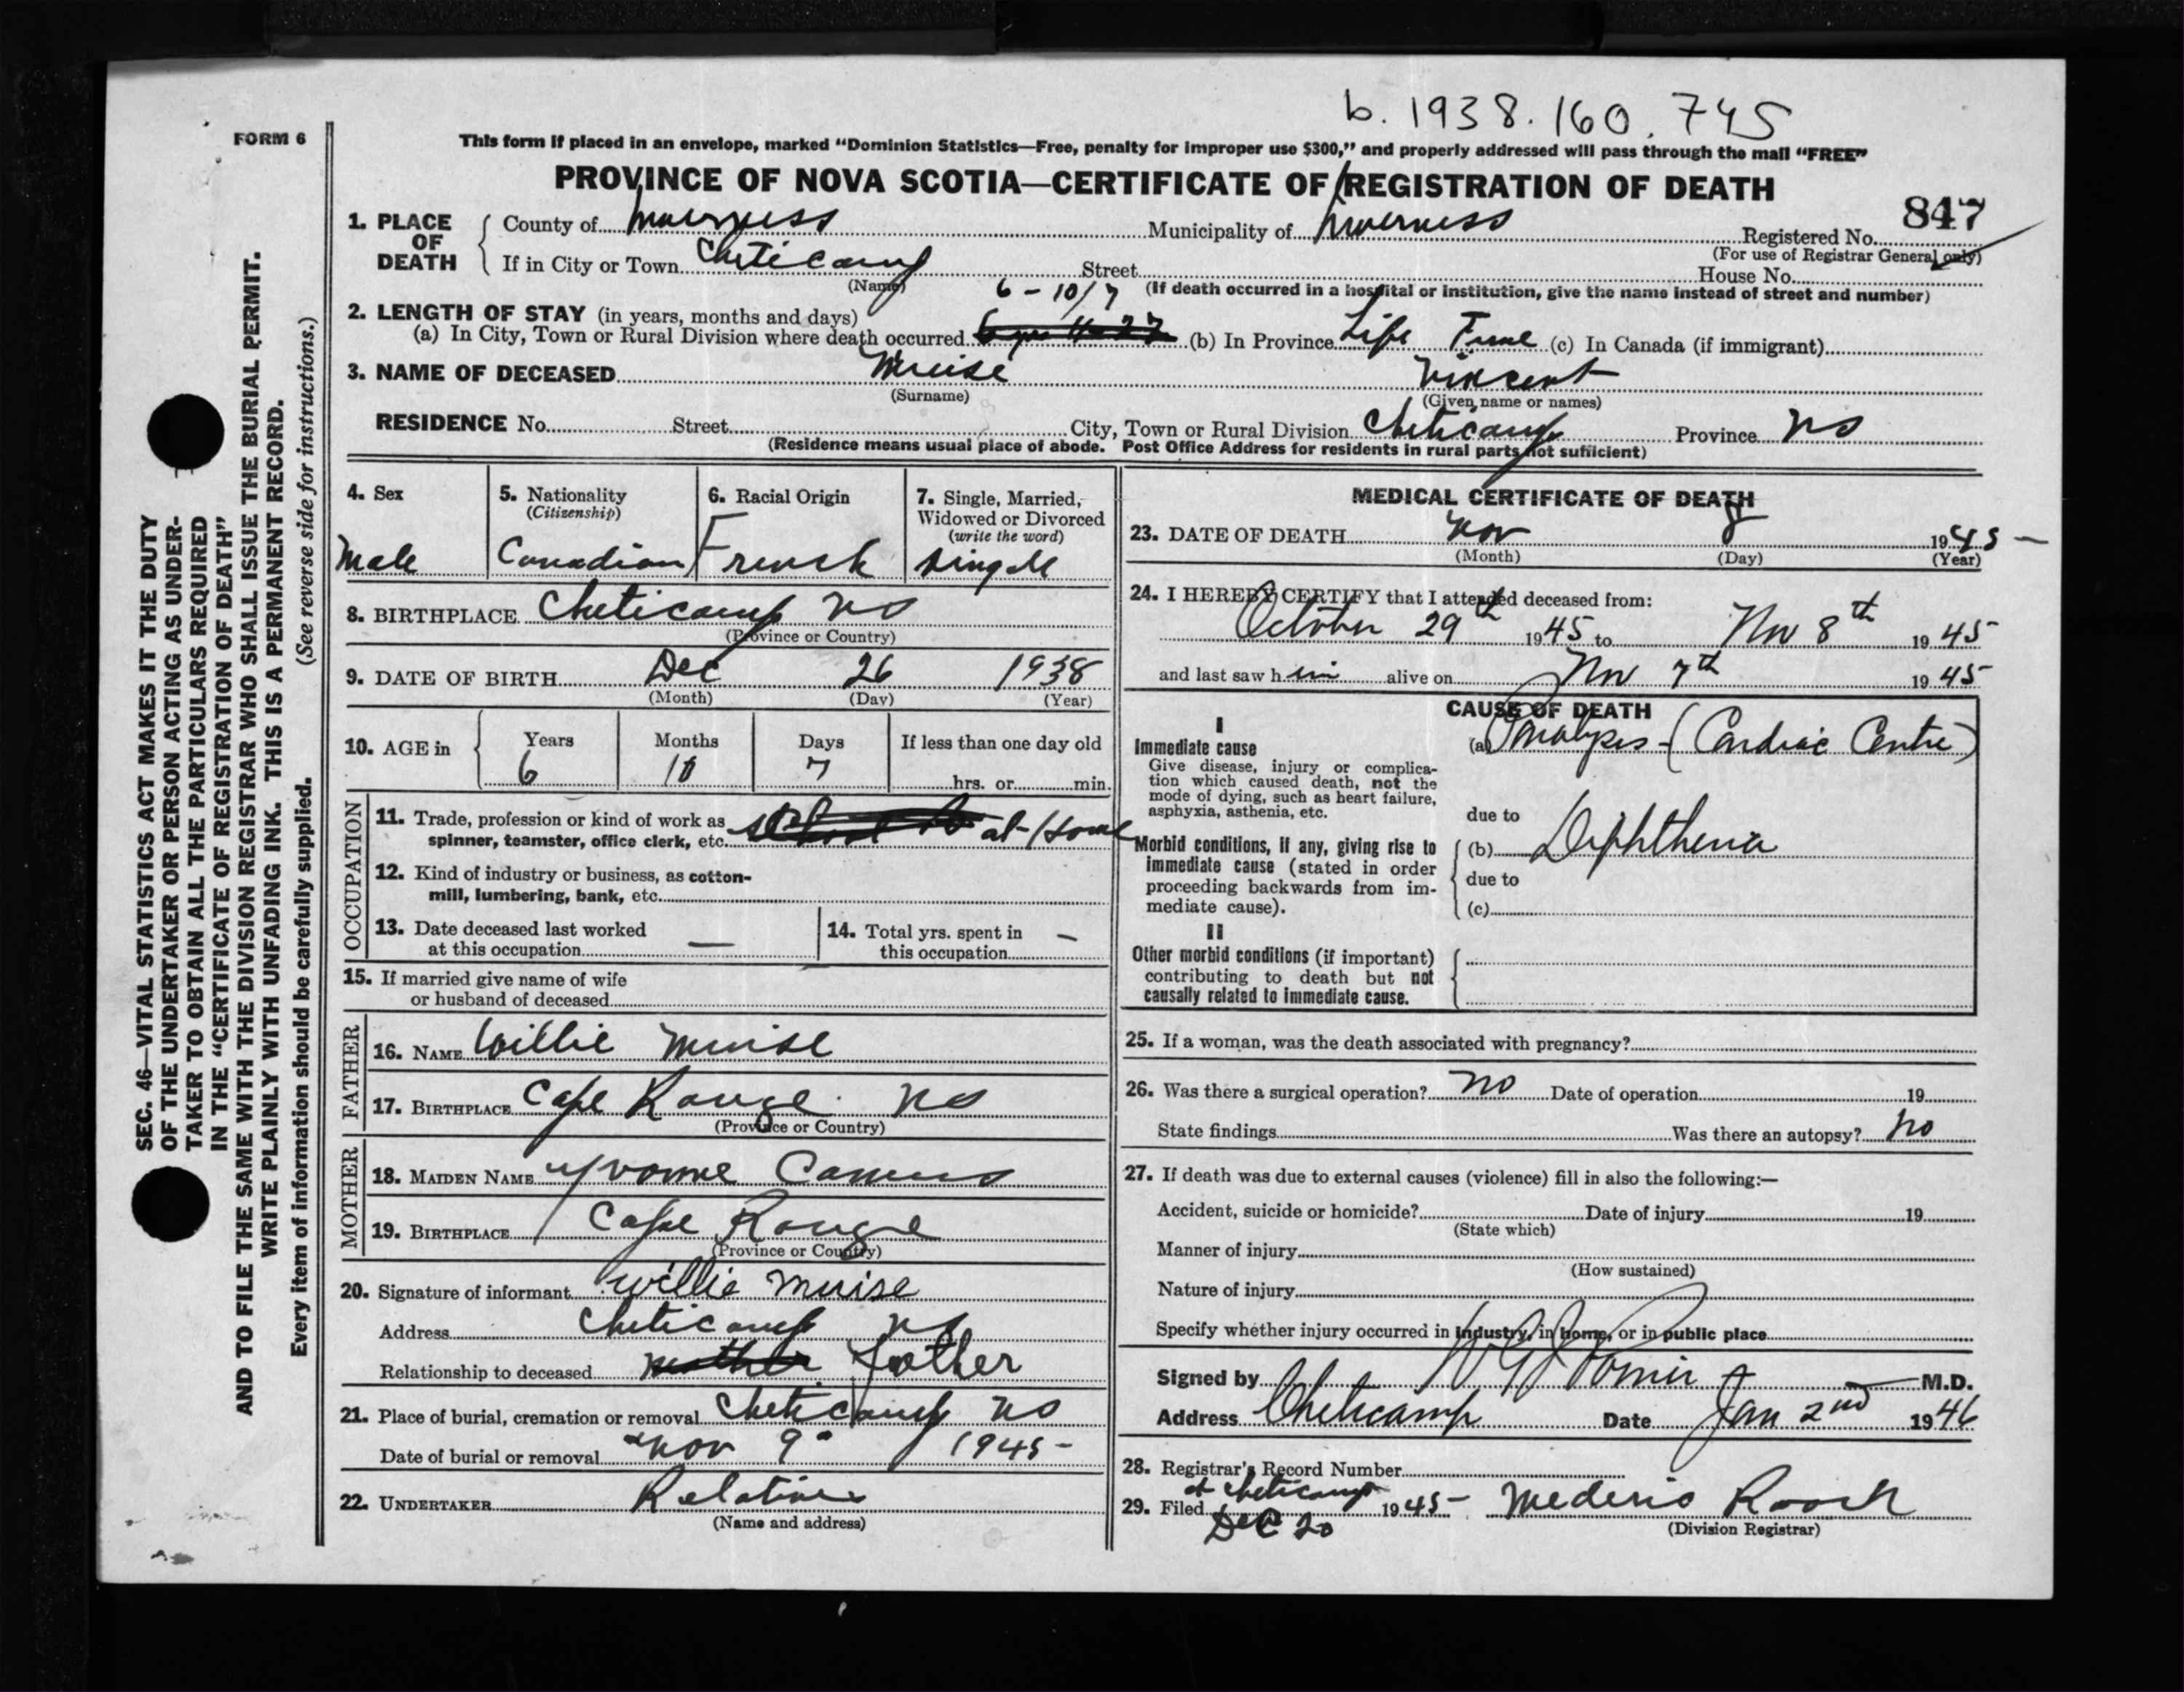 b. 1938. 160. 745
FORM 6
This form if placed in an envelope, marked "Dominion Statistics—Free, penalty for improper use $300," and properly addressed will pass through the mail "FREE"
PROVINCE OF NOVA SCOTIA—CERTIFICATE OF REGISTRATION OF DEATH
847
1. PLACE OF DEATH
County of Inverness Municipality of Inverness Registered No.
(For use of Registrar General only)
If in City or Town Cheticamp Street House No.
(Name) (If death occurred in a hospital or institution, give the name instead of street and number)
2. LENGTH OF STAY (in years, months and days) 6 - 10/7
(a) In City, Town or Rural Division where death occurred (b) In Province Life Time (c) In Canada (if immigrant)
3. NAME OF DECEASED Muise Vincent
(Surname) (Given name or names)
RESIDENCE No. Street City, Town or Rural Division Cheticamp Province NS
(Residence means usual place of abode. Post Office Address for residents in rural parts not sufficient)
4. Sex
Male
5. Nationality
(Citizenship)
Canadian
6. Racial Origin
French
7. Single, Married,
Widowed or Divorced
(write the word)
single
8. BIRTHPLACE Cheticamp NS
(Province or Country)
9. DATE OF BIRTH Dec 26 1938
(Month) (Day) (Year)
10. AGE in Years Months Days If less than one day old
6 10 7 hrs. or min.
OCCUPATION
11. Trade, profession or kind of work as
spinner, teamster, office clerk, etc. at Home
12. Kind of industry or business, as cotton-
mill, lumbering, bank, etc.
13. Date deceased last worked
at this occupation —
14. Total yrs. spent in
this occupation —
15. If married give name of wife
or husband of deceased
FATHER
16. NAME Willie Muise
17. BIRTHPLACE Cape Rouge NS
(Province or Country)
MOTHER
18. MAIDEN NAME Yvonne Camus
19. BIRTHPLACE Cape Rouge
(Province or Country)
20. Signature of informant Willie Muise
Address Cheticamp NS
Relationship to deceased mother Father
21. Place of burial, cremation or removal Cheticamp NS
Date of burial or removal Nov 9 1945
22. UNDERTAKER Relatives
(Name and address)
MEDICAL CERTIFICATE OF DEATH
23. DATE OF DEATH Nov 8 1945
(Month) (Day) (Year)
24. I HEREBY CERTIFY that I attended deceased from:
October 29th 1945 to Nov 8th 1945
and last saw him alive on Nov 7th 1945
CAUSE OF DEATH
I
Immediate cause
Give disease, injury or complica-
tion which caused death, not the
mode of dying, such as heart failure,
asphyxia, asthenia, etc.
(a) Paralysis - (Cardiac Centre)
due to
Morbid conditions, if any, giving rise to
immediate cause (stated in order
proceeding backwards from im-
mediate cause).
(b) Diphtheria
due to
(c)
II
Other morbid conditions (if important)
contributing to death but not
causally related to immediate cause.
25. If a woman, was the death associated with pregnancy?
26. Was there a surgical operation? No Date of operation 19
State findings Was there an autopsy? No
27. If death was due to external causes (violence) fill in also the following:—
Accident, suicide or homicide? Date of injury 19
(State which)
Manner of injury
(How sustained)
Nature of injury
Specify whether injury occurred in industry, in home, or in public place
Signed by M.D.
Address Cheticamp Date Jan 2nd 1946
28. Registrar's Record Number
29. Filed at Cheticamp Dec 20 1945
(Division Registrar)
SEC. 46—VITAL STATISTICS ACT MAKES IT THE DUTY
OF THE UNDERTAKER OR PERSON ACTING AS UNDER-
TAKER TO OBTAIN ALL THE PARTICULARS REQUIRED
IN THE "CERTIFICATE OF REGISTRATION OF DEATH"
AND TO FILE THE SAME WITH THE DIVISION REGISTRAR WHO SHALL ISSUE THE BURIAL PERMIT.
WRITE PLAINLY WITH UNFADING INK. THIS IS A PERMANENT RECORD.
Every item of information should be carefully supplied. (See reverse side for instructions.)